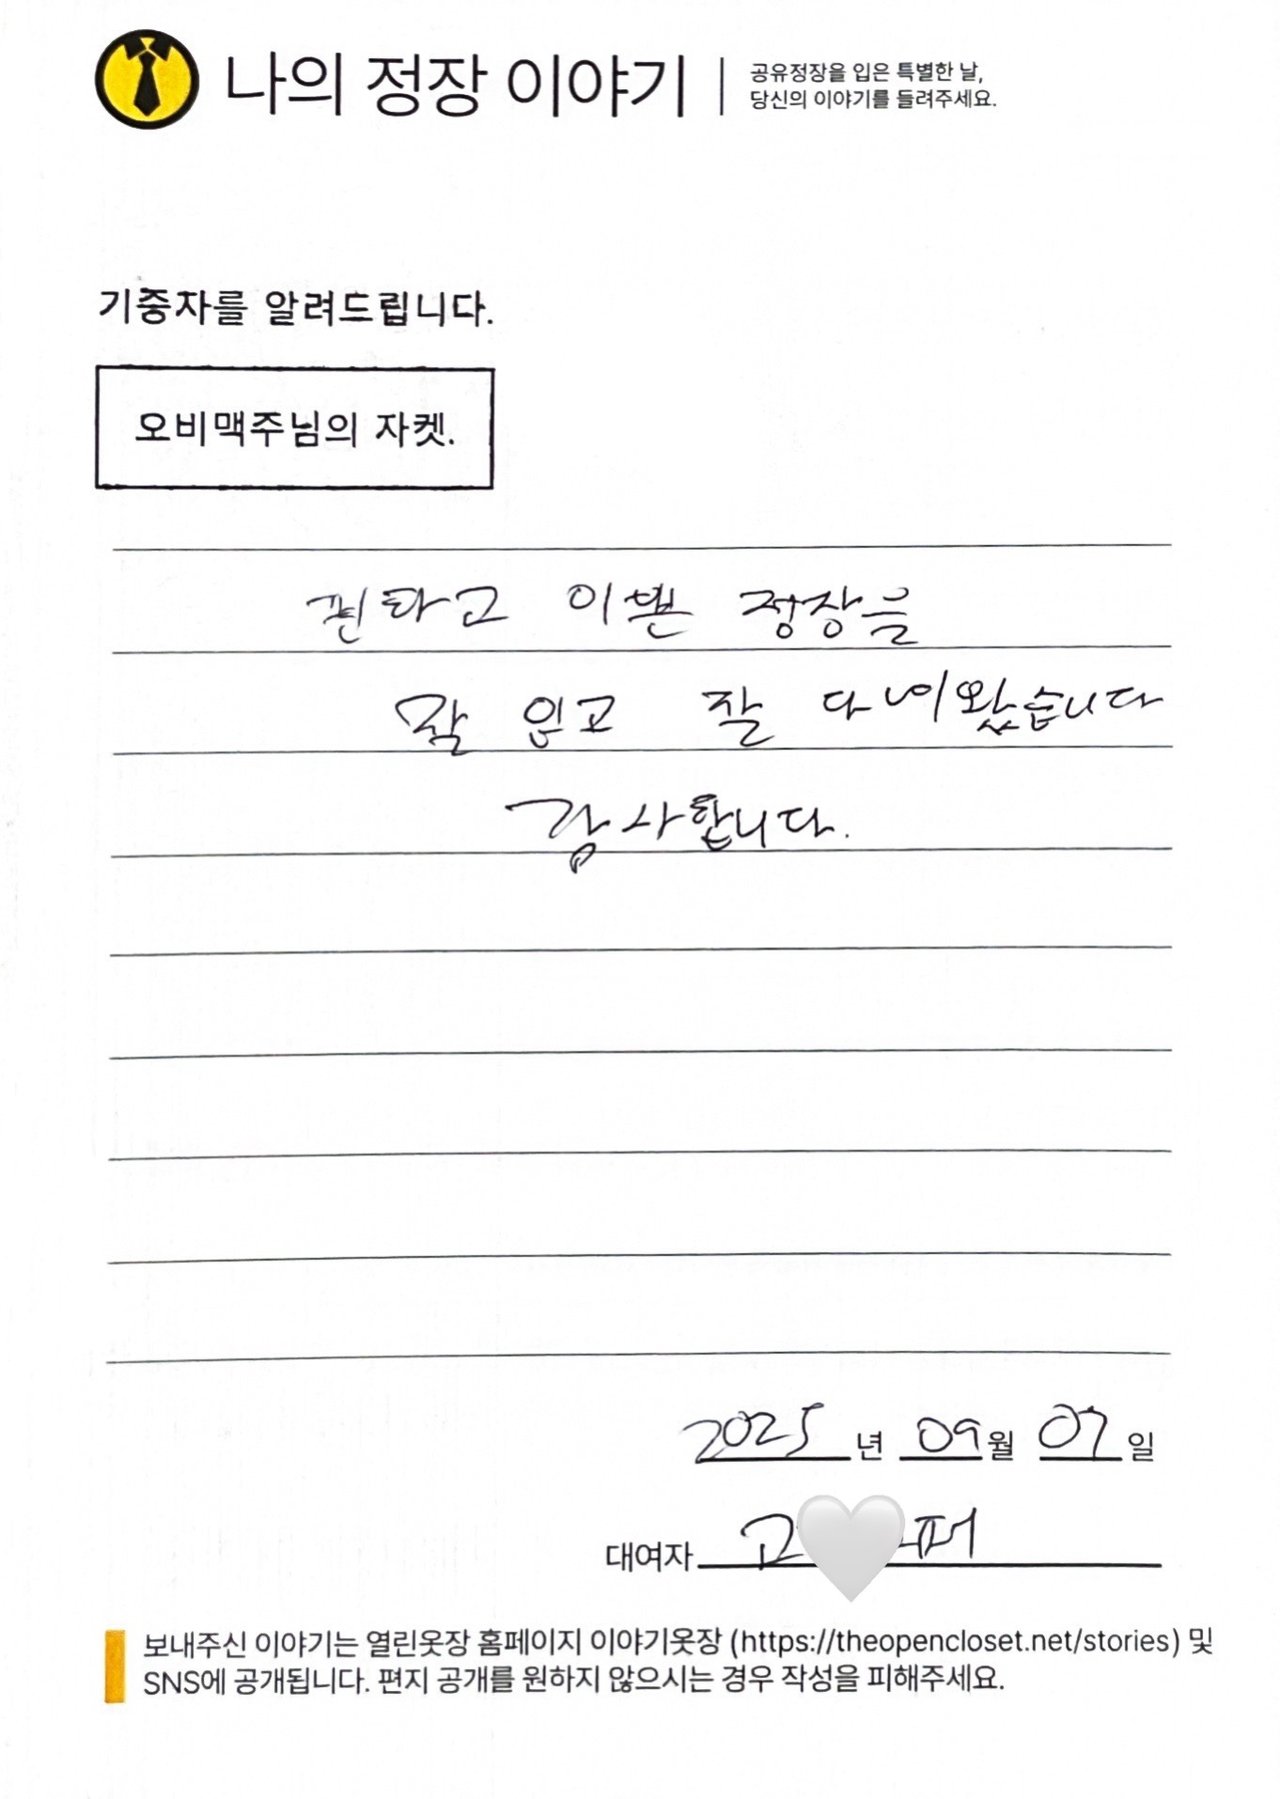 나의 정장 이야기
공유정장을 입은 특별한 날,
당신의 이야기를 들려주세요.
기증자를 알려드립니다.
오비맥주님의 자켓.
이쁜 정장을
잘 입고 잘 다녀왔습니다
감사합니다.
2025년 09월 07일
대여자 고
보내주신 이야기는 열린옷장 홈페이지 이야기옷장 (https://theopencloset.net/stories) 및
SNS에 공개됩니다. 편지 공개를 원하지 않으시는 경우 작성을 피해주세요.